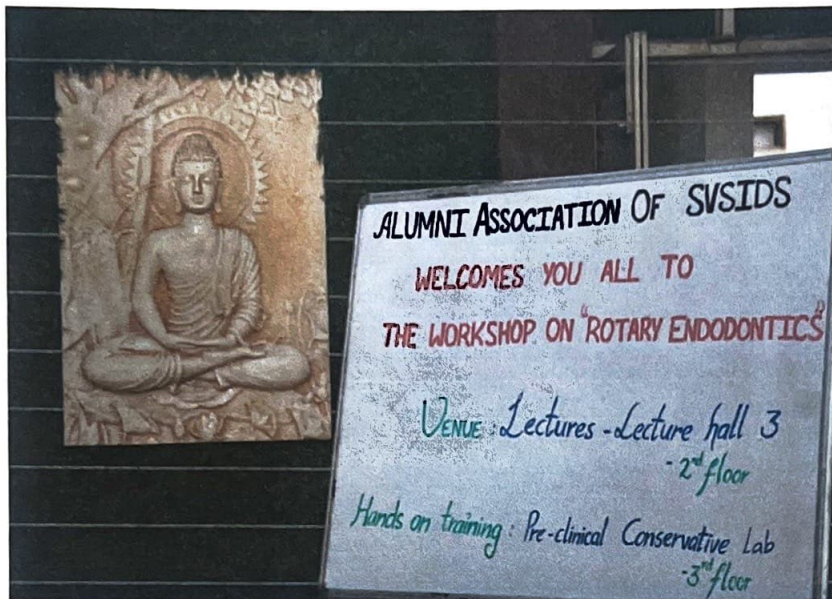 ALUMNI ASSOCIATION OF SVSIDS
WELCOMES YOU ALL TO
THE WORKSHOP ON "ROTARY ENDODONTICS"
VENUE : Lectures - Lecture hall 3
- 2nd floor
Hands on training : Pre-clinical Conservative Lab
- 3rd floor